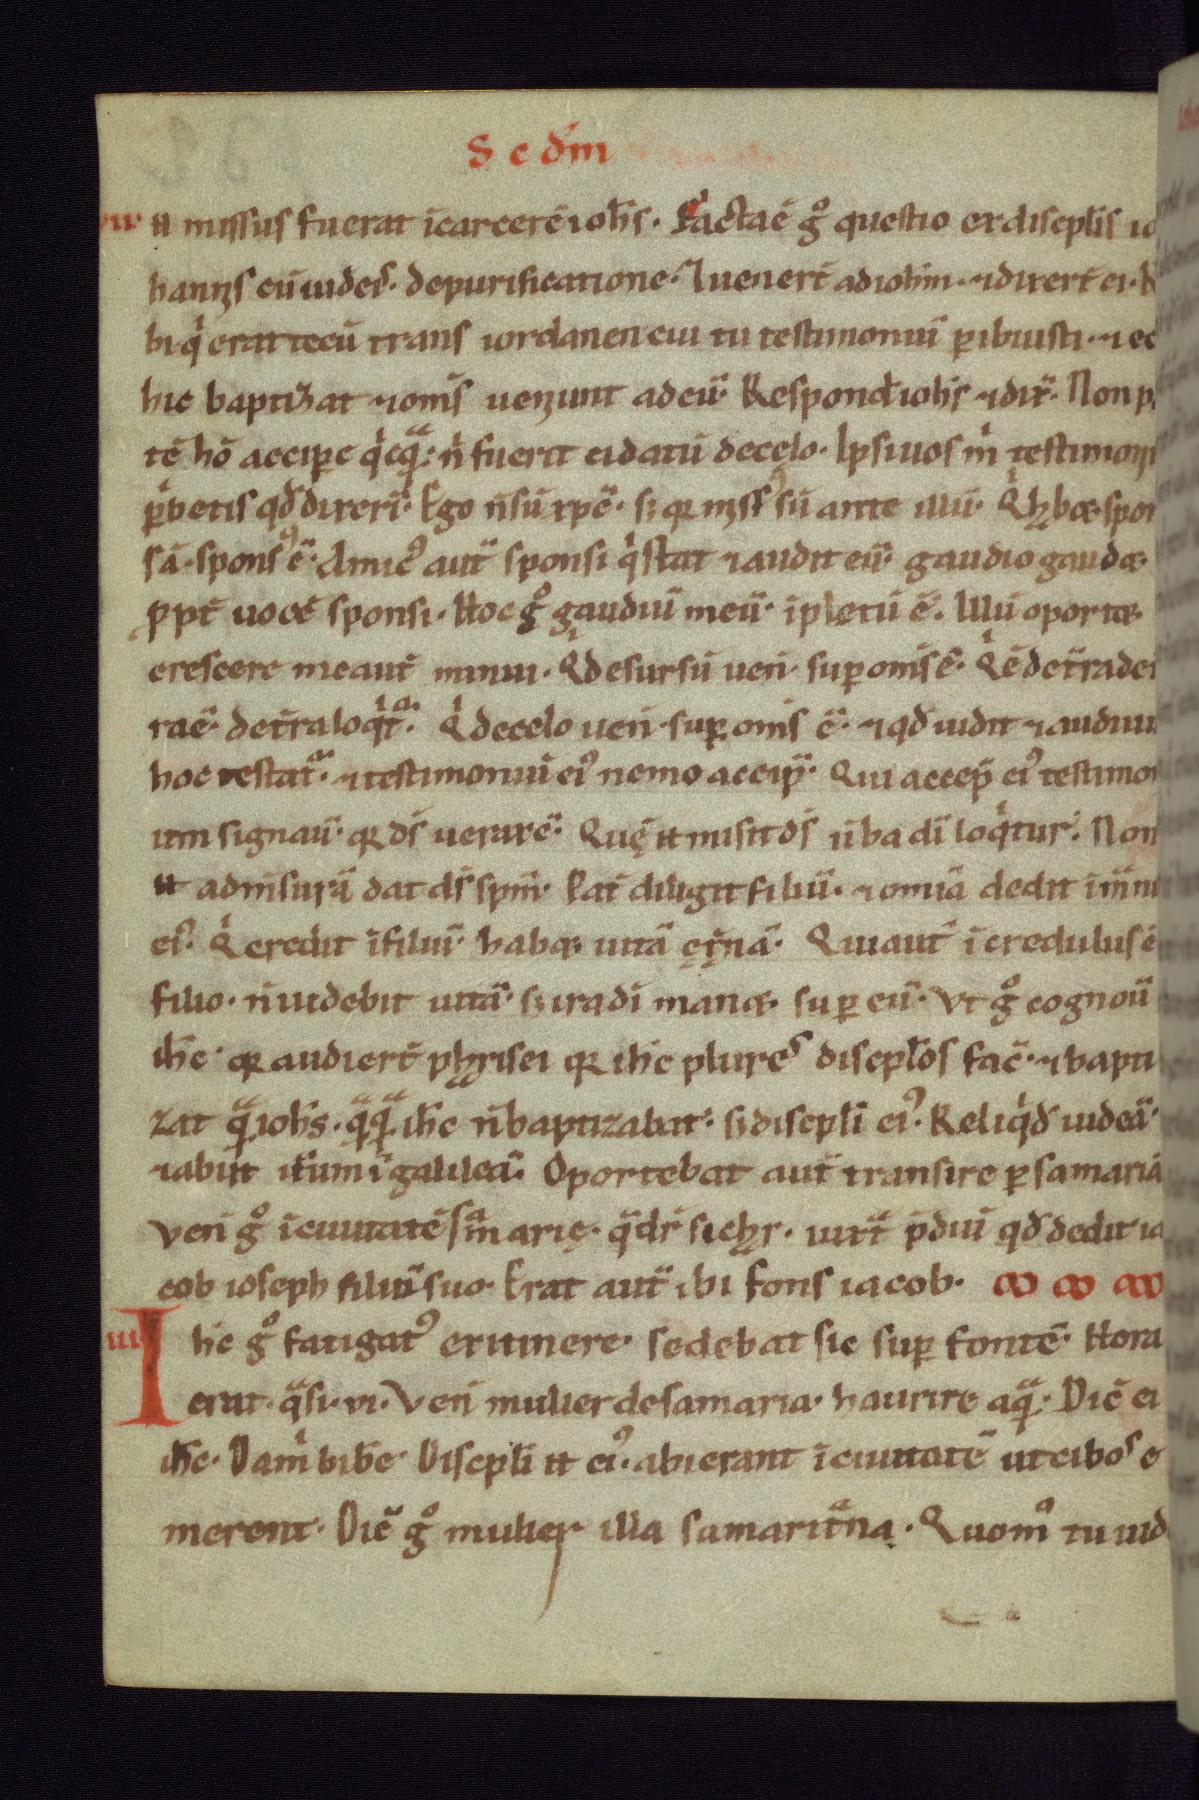 Scd̄m
tt missus fuerat ī carcerē ioh̄s. Facta ē gͦ questio ex discipl̄is io
hannis cū iudeis. de purificatione. Et uener̄t ad ioh̄m. ⁊ dixer̄t ei. R
bi qͥ erat tecū trans iordanen cui tu testimoniū ꝑibuisti. ⁊ ec
hic baptizat ⁊ om̄s ueniunt ad eū. Respond̄ ioh̄s ⁊ dix̄. Non p
tē hō accipe qͥcqͣ. n̄ fuerit ei datū de cęlo. Ipsi uos mͥ testimoni
ꝑbetis qd̄ dixerī. Ego n̄ sū xpē. sꝫ qꝛ missꝰ sū ante illū. Qͥ hꝫ spon
sā. sponsꝰ ē. Amicꝰ aut̄ sponsi qͥ stat ⁊ audit eū. gaudio gaudꝫ
ꝓpt̄ uocē sponsi. Hoc gͦ gaudiū meū. īpletū ē. Illū oportꝫ
crescere me aut̄ minui. Qͥ desursū uen̄. suꝑ om̄s ē. Qͥ ē de t̄ra de t
ra ē. de t̄ra loqͥtͬ. Qͥ de celo uen̄. suꝑ om̄s ē. ⁊ qd̄ uidit ⁊ audiui
hoc testatͬ. ⁊ testimoniū eiꝰ nemo accip̄. Qui accep̄ eiꝰ testimon
ium signau̅. qꝛ d̄s uerax ē. Quē tt misit d̄s ūba dī loqͥtur. Non
tt ad m̄surā dat d̄s sp̄m. Pat̄ diligit filiū. ⁊ omīa dedit ī man
eiꝰ. Qͥ credit ī filiū. habꝫ uitā ęt̄nā. Qui aut̄ īcredulus ē
filio. n̄ uidebit uitā. sꝫ ira dī manꝫ suꝑ eū. Vt gͦ cognou̅
ih̄c. qꝛ audier̄t pharisei qꝛ ih̄c plures discipl̄os fac̄. ⁊ bapti
zat qͣ ioh̄s. qͣqͣ ih̄c n̄ baptizabat. sꝫ discipl̄i eiꝰ. Reliqͥd iudeā.
⁊ abiit it̄um ī galileā. Oportebat aut̄ transire ꝑ samariā
Ven̄ gͦ ī ciuitatē samarię. qͣ dr̄ sichar. iuxͣ p̄diū qd̄ dedit ia
cob ioseph filiū suo. Erat aut̄ ibi fons iacob.
Ih̄c gͦ fatigatꝰ ex itinere. sedebat sic suꝑ fontē. Hora
erat. qͣsi. vi. Ven̄ mulier de samaria. haurire aqͣ. Dic̄ ei
ih̄c. Da mͥ bib̄e. Discipl̄i tt eiꝰ. abierant ī ciuitatē ut cibos e
merent. Dic̄ gͦ mulier illa samaritͣna. Quomͦ tu iud